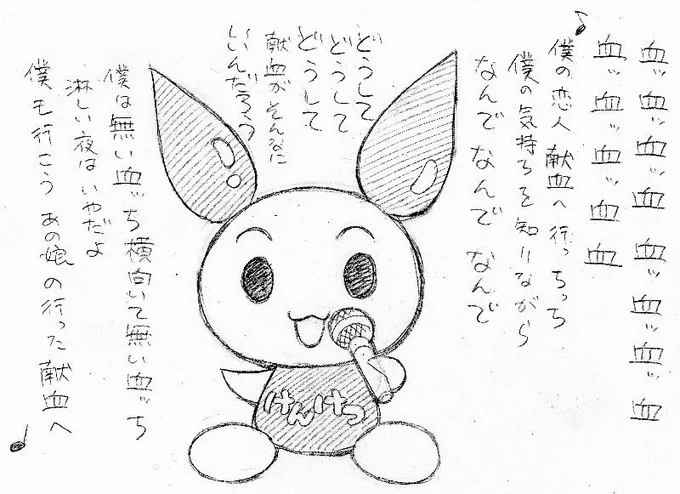 血ッ血ッ血ッ血 血ッ血ッ血ッ血
血ッ血ッ血ッ血血
♪僕の恋人 献血へ行っちっち
僕の気持ちを知りながら
なんで なんで なんで
どうして
どうして
どうして
献血がそんなに
いいんだろう?
僕は無い血ッち 横向いて無い血ッち
淋しい夜はいやだよ
僕も行こう あの娘の行った献血へ♩
けんけつ